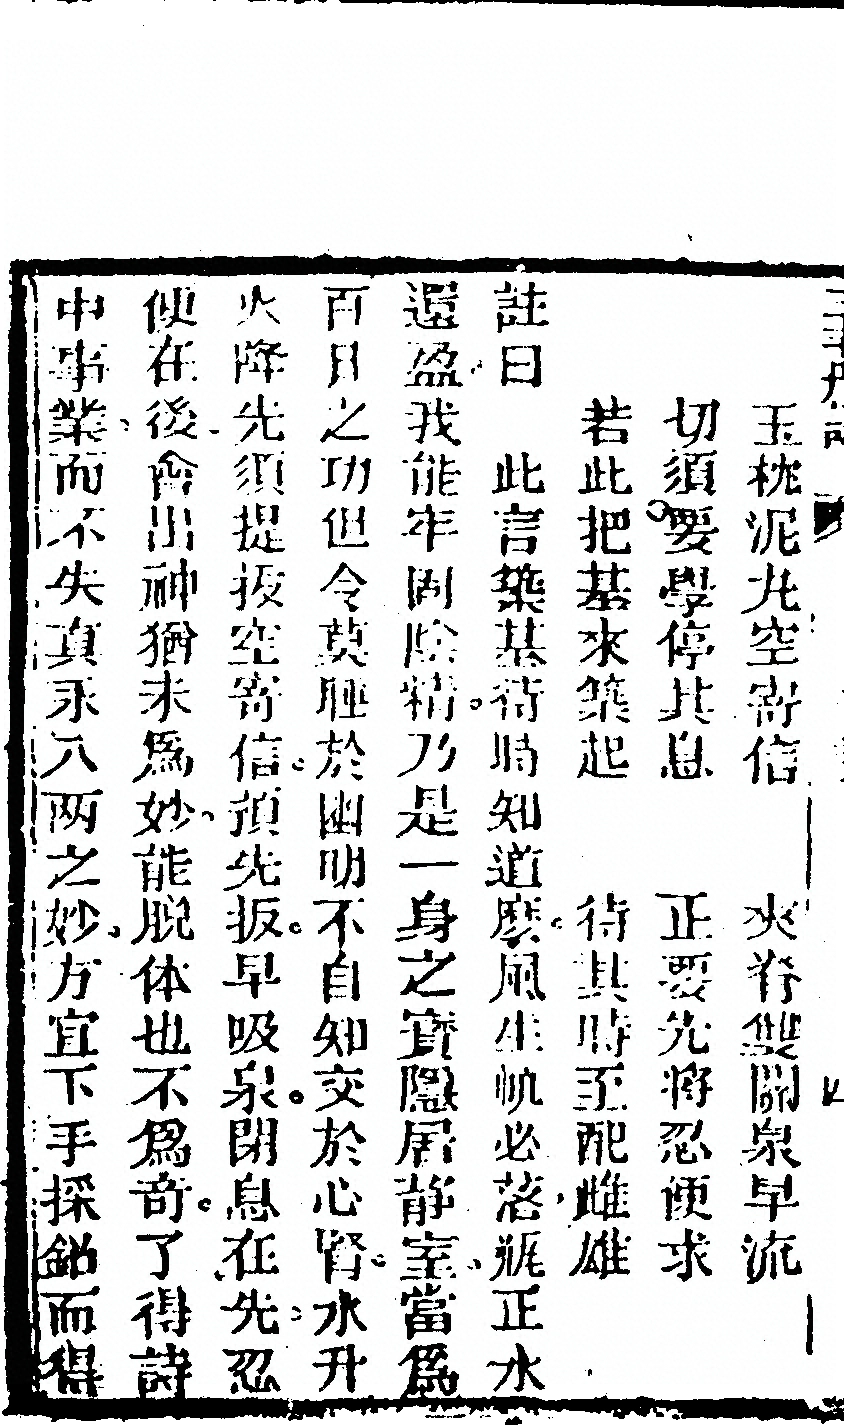 玉枕泥丸空寄信　夾脊雙關泉早流
切須要學停其息　正要先將忍便求
若此把基來築起　待其時至配雌雄
註曰　此言築基待時知道麽風生帆必落瓶正水
還盈我能牢固陰精乃是一身之寶隱居静室當爲
百日之功但令莫睡於幽明不自知交於心腎水升
火降先須提扳空寄信須先扳早吸泉閉息在先忍
便在後會出神猶未爲妙能脱体也不爲奇了得詩
中事業而不失真汞八两之妙方宜下手採鉛而得